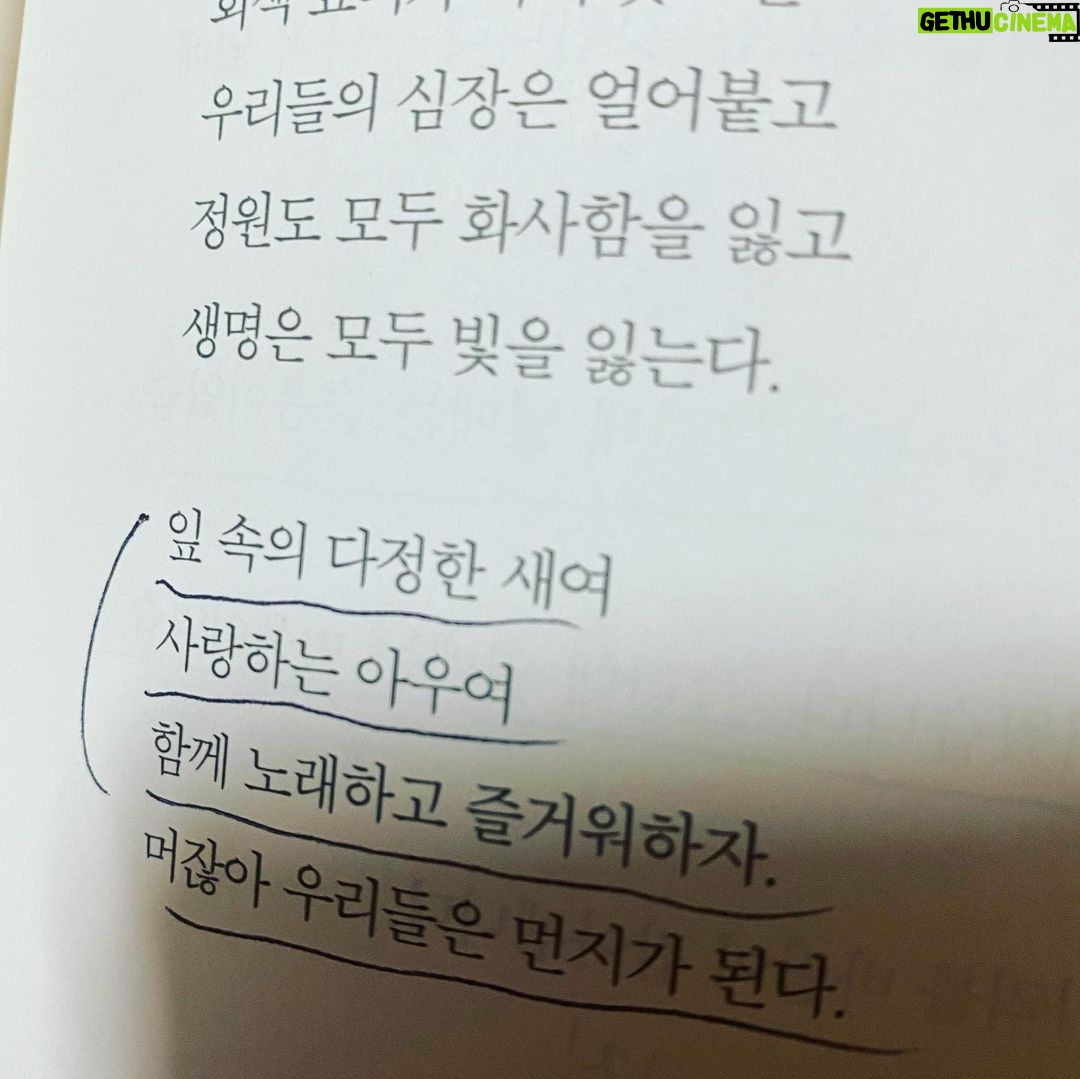 GETHUCINEMA
우리들의 심장은 얼어붙고
정원도 모두 화사함을 잃고
생명은 모두 빛을 잃는다.
잎 속의 다정한 새여
사랑하는 아우여
함께 노래하고 즐거워하자.
머잖아 우리들은 먼지가 된다.